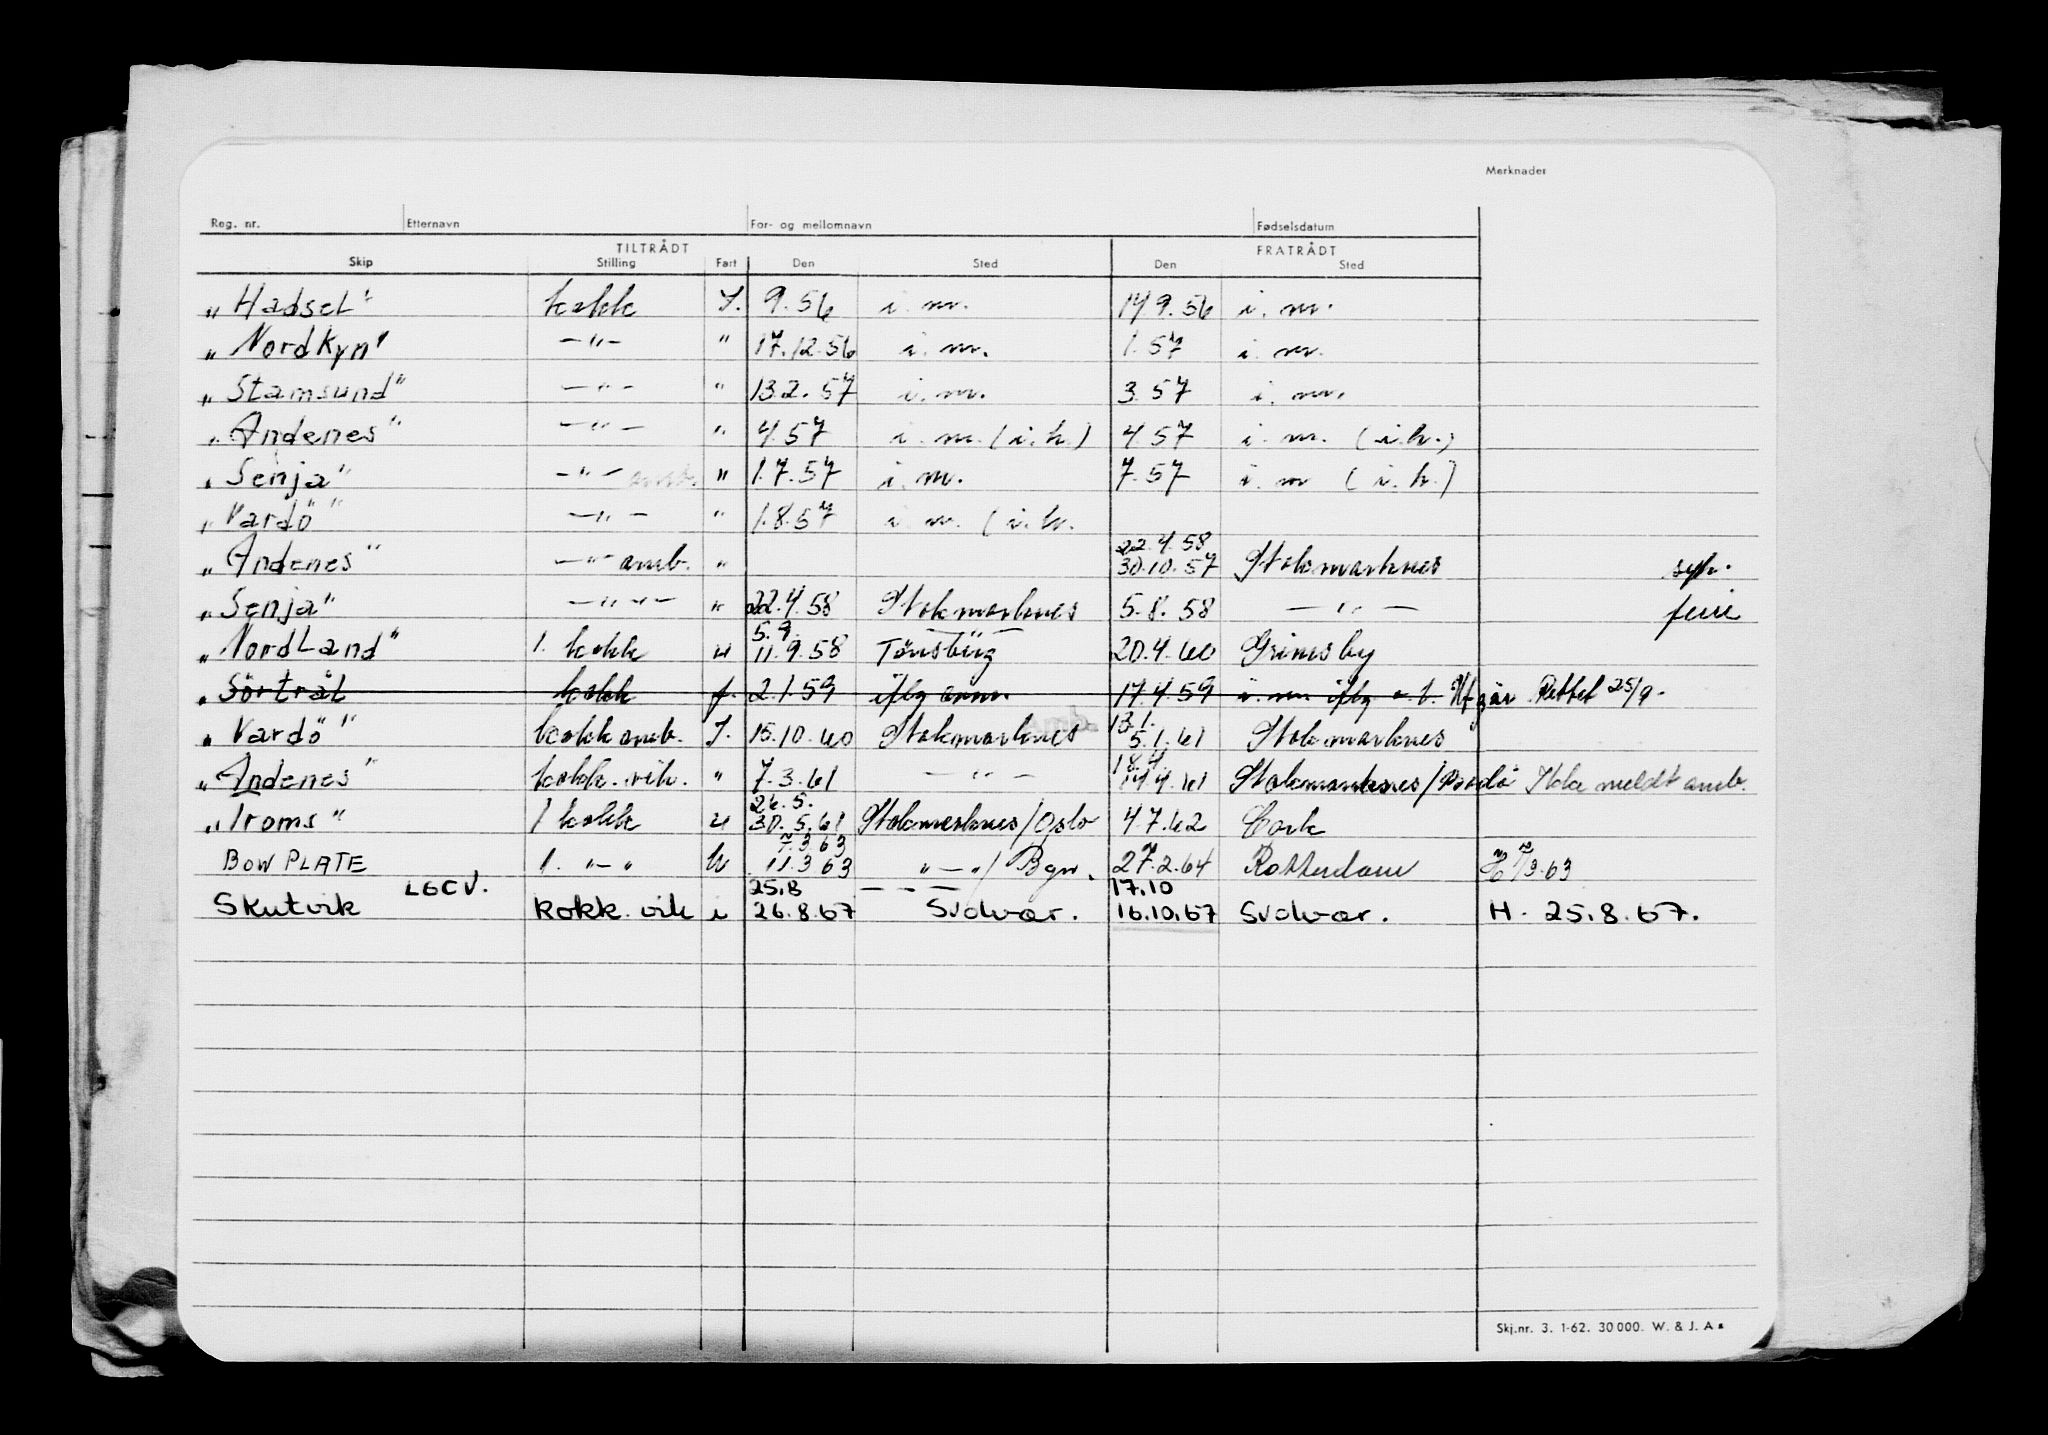 Merknader
Reg. nr. Etternavn For- og mellomnavn Fødselsdatum
TILTRÅDT FRATRÅDT
Skip Stilling Fart Den Sted Den Sted
"Hadsel" kokk I. 9.56 i. m. 14 9.56 i. m.
"Nordkyn" —"— " 17.12.56 i. m. 1.57 i. m.
"Stamsund" —"— " 13.2.57 i. m. 3.57 i. m.
"Andenes" —"— " 4.57 i. m. (i.h.) 4.57 i. m. (i.h.)
"Senja" —"— amb. " 1.7.57 i. m. 7.57 i. m (i.h.)
"Vardö" —"— " 1.8.57 i. m. (i.h.
22.4.58
"Andenes" —"— amb. " 30.10.57 Stokmarknes syk.
"Senja" —"—"— " 22.4.58 Stokmarknes 5.8.58 —"— ferie
5.9.
"Nordland" 1. kokk u 11.9.58 Tönsberg 20.4.60 Grimsby
"Sörtrål kokk f. 2.1.59 iflg anm. 17.4.59 i. m. iflg Utgår Rettet 25/9.
13.1.
"Vardö" kokk amb. I. 15.10.60 Stokmarknes 5.1.61 Stokmarknes
18.4.
"Andenes" kokk. vik. " 7.3.61 —"— 14.4.61 Stokmarknes/Bodö Ikke meldt amb.
26.5.
"Troms" 1 kokk u 30.5.61 Stokmarknes/Oslo 4.7.62 Cork
7.3 63
BOW PLATE 1. "—" u 11.3 63 "—"/Bgn. 27.2.64 Rotterdam H 7/3.63
LGCV. 25.8 — — — 17.10
Skutvik kokk. vik i 26.8.67 Svolvær. 16.10.67 Svolvær. H. 25.8.67.
Skj.nr. 3. 1-62. 30 000. W. & J. A s